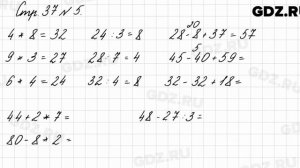 Стр. 37 № 5.
GDZ.RU
4 * 8 = 32 24 : 3 = 8 28 - 8 + 37 = 57
20
9 * 3 = 27 28 : 7 = 4 45 - 40 + 59 =
5
6 * 4 = 24 32 : 4 = 8 32 - 32 + 18 =
44 + 2 * 7 = 48 - 27 : 3 =
80 - 8 * 2 =